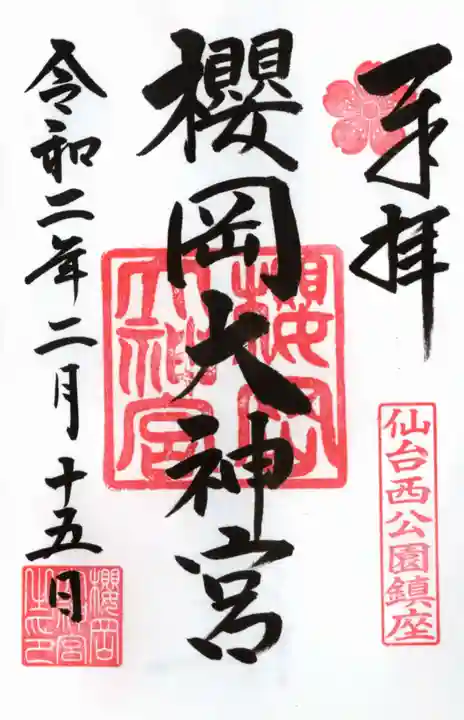 奉拝
仙台西公園鎮座
櫻岡大神宮
櫻岡大神宮
令和二年二月十五日